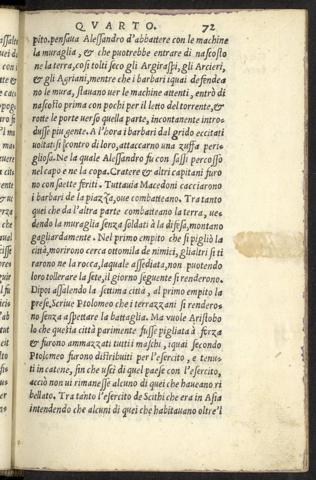 QVARTO. 72
pito. pensaua Alessandro d'abbattere con le machine
la muraglia, & che puotrebbe entrare di nascosto
ne la terra, così tolti seco gli Argiraspi, gli Arcieri,
& gli Agriani, mentre che i barbari iquai defendea
no le mura, stauano uer le machine attenti, entrò di
nascosto prima con pochi per il letto del torrente, &
rotte le porte uerso quella parte, incontanente intro-
dusse piu gente. A l'hora i barbari dal grido eccitati
uoltatisi contro di loro, attaccarno una zuffa peri-
gliosa. Ne la quale Alessandro fu con sassi percosso
nel capo e ne la copa. Cratere & altri capitani furo
no con saette feriti. Tuttauia Macedoni cacciarono
i barbari de la piazza, oue combatteano. Tra tanto
quei che da l'altra parte combatteano la terra, ue-
dendo la muraglia senza soldati à la difesa, montano
gagliardamente. Nel primo empito che si pigliò la
città, morirono cerca ottomila de nimici, gli altri si ti
rarono ne la rocca, laquale assediata, non puotendo
loro tollerare la sete, il giorno seguente si renderono.
Dipoi assalendo la settima città, al primo empito la
prese. Scriue Ptolomeo che i terrazzani si rendero-
no senza aspettare la battaglia. Ma vuole Aristobo
lo che questa città parimente fusse pigliata à forza
& furono ammazzati tutti i maschi, iquai secondo
Ptolomeo furono distribuiti per l'esercito, e tenu-
ti in catene, fin che uscì di quel paese con l'esercito,
acciò non ui rimanesse alcuno di quei che haueano ri
bellato. Tra tanto l'esercito de Scithi che era in Asia
intendendo che alcuni di quei che habitauano oltre'l